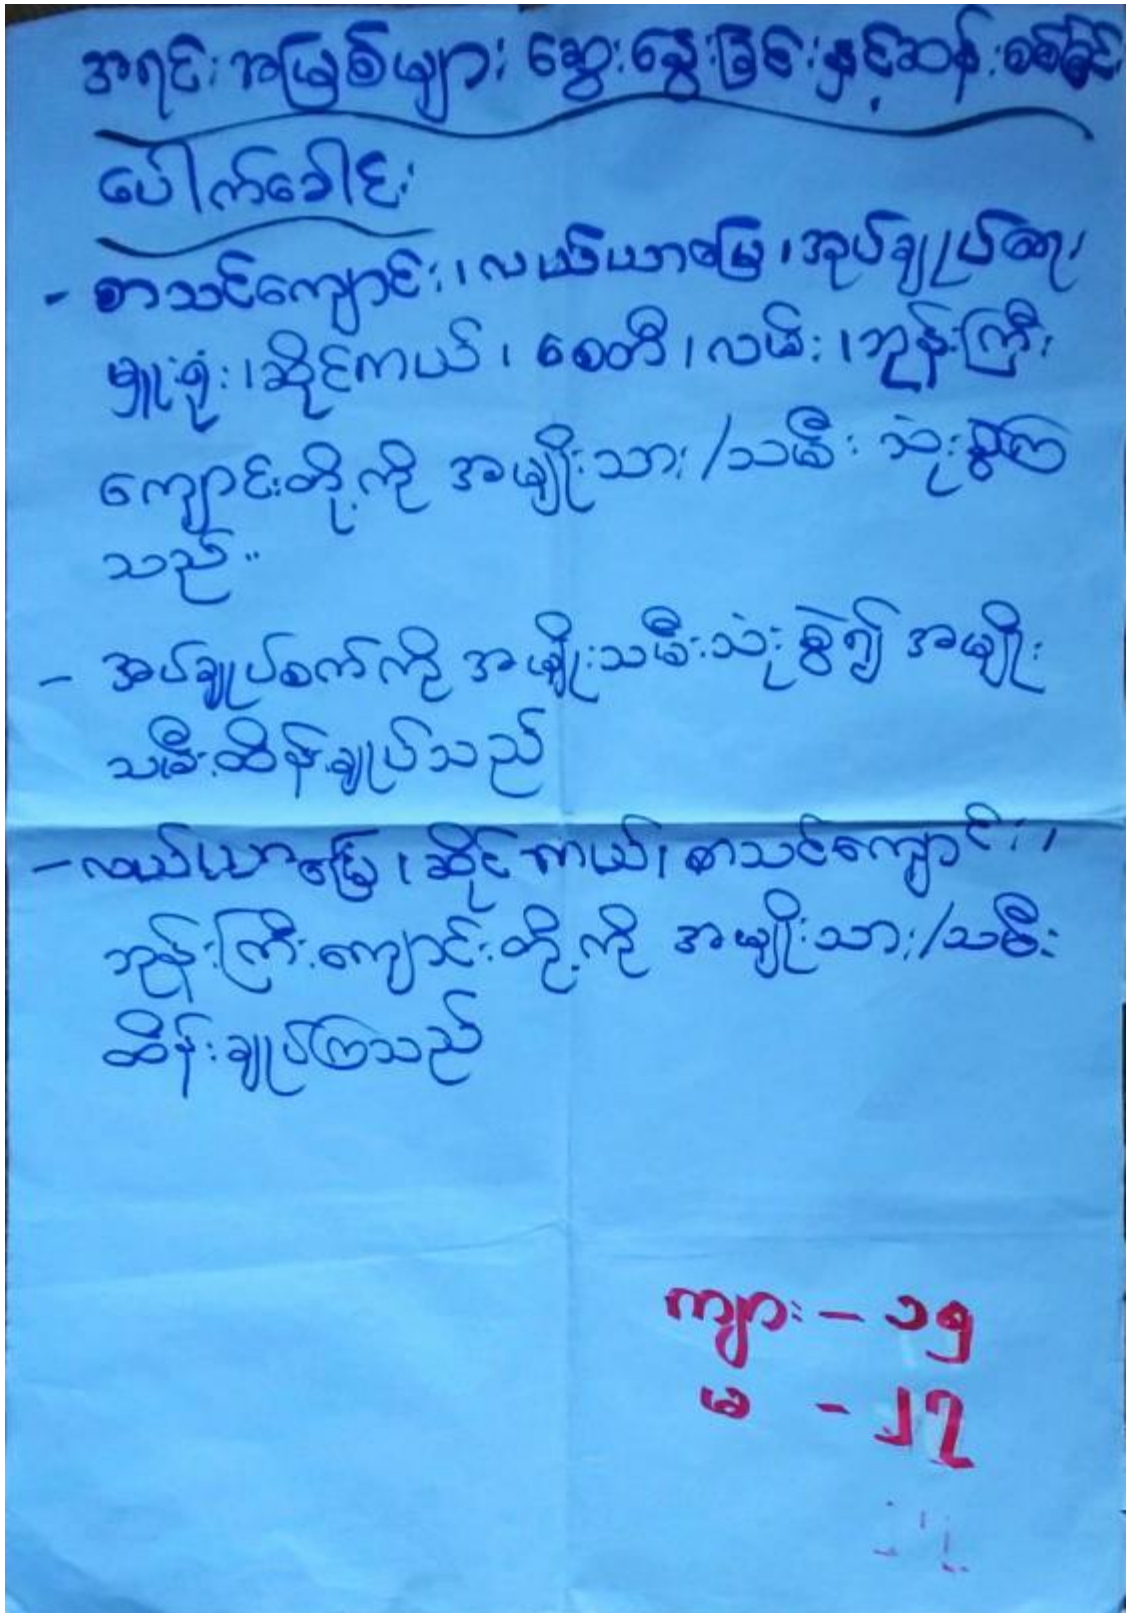 အရင်းအမြစ်များ ဆွေးနွေးခြင်းနှင့်ဆန်းစစ်ခြင်း
ပေါက်ခေါင်း
- စာသင်ကျောင်း၊ လယ်ယာမြေ၊ အုပ်ချုပ်ရေး၊
မှူးရုံး၊ ဆိုင်ကယ်၊ စေတီ၊ လမ်း၊ ဘုန်းကြီး
ကျောင်းတို့ကို အမျိုးသား/သမီး သုံးစွဲကြ
သည်။
- အပ်ချုပ်စက်ကို အမျိုးသမီးသုံးစွဲ၍ အမျိုး
သမီးထိန်းချုပ်သည်
- လယ်ယာမြေ၊ ဆိုင်ကယ်၊ စာသင်ကျောင်း၊
ဘုန်းကြီးကျောင်းတို့ကို အမျိုးသား/သမီး
ထိန်းချုပ်ကြသည်
ကျား - ၁၅
မ - ၂၇